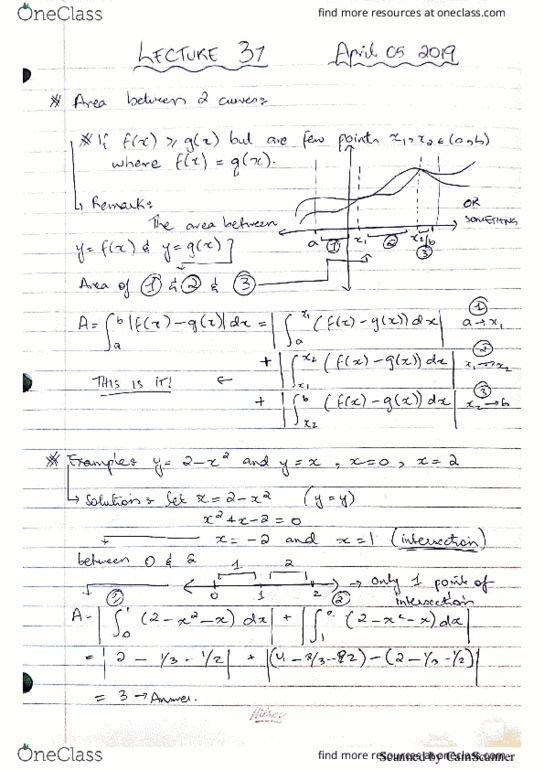 OneClass
find more resources at oneclass.com
LECTURE 31 April 05 2019
* Area between 2 curves:
* If f(x) ≥ g(x) but are few points x₁, x₂ ∈ (a, b)
where f(x) = g(x).
Remark:
The area between
y = f(x) & y = g(x)
Area of ① & ② & ③
a ① x₁ ② x₂ b
③
OR
SOMETHING
A = ∫ₐᵇ |f(x) − g(x)| dx = |∫ₐˣ¹ (f(x) − g(x)) dx| ① a → x₁
+ |∫ₓ₁ˣ² (f(x) − g(x)) dx| ② x₁ → x₂
THIS IS IT! ←
+ |∫ₓ₂ᵇ (f(x) − g(x)) dx| ③ x₂ → b
* Example: y = 2 − x² and y = x, x = 0, x = 2
↳ Solution: Set x = 2 − x² (y = y)
x² + x − 2 = 0
x = −2 and x = 1 (intersection)
between 0 & 2
1 2
0 1 2 → only 1 point of
intersection
① ②
A = |∫₀¹ (2 − x² − x) dx| + |∫₁² (2 − x² − x) dx|
= |2 − 1/3 − 1/2| + |(4 − 8/3 − 2) − (2 − 1/3 − 1/2)|
= 3 → Answer.
OneClass
find more resources at oneclass.com
Scanned by CamScanner